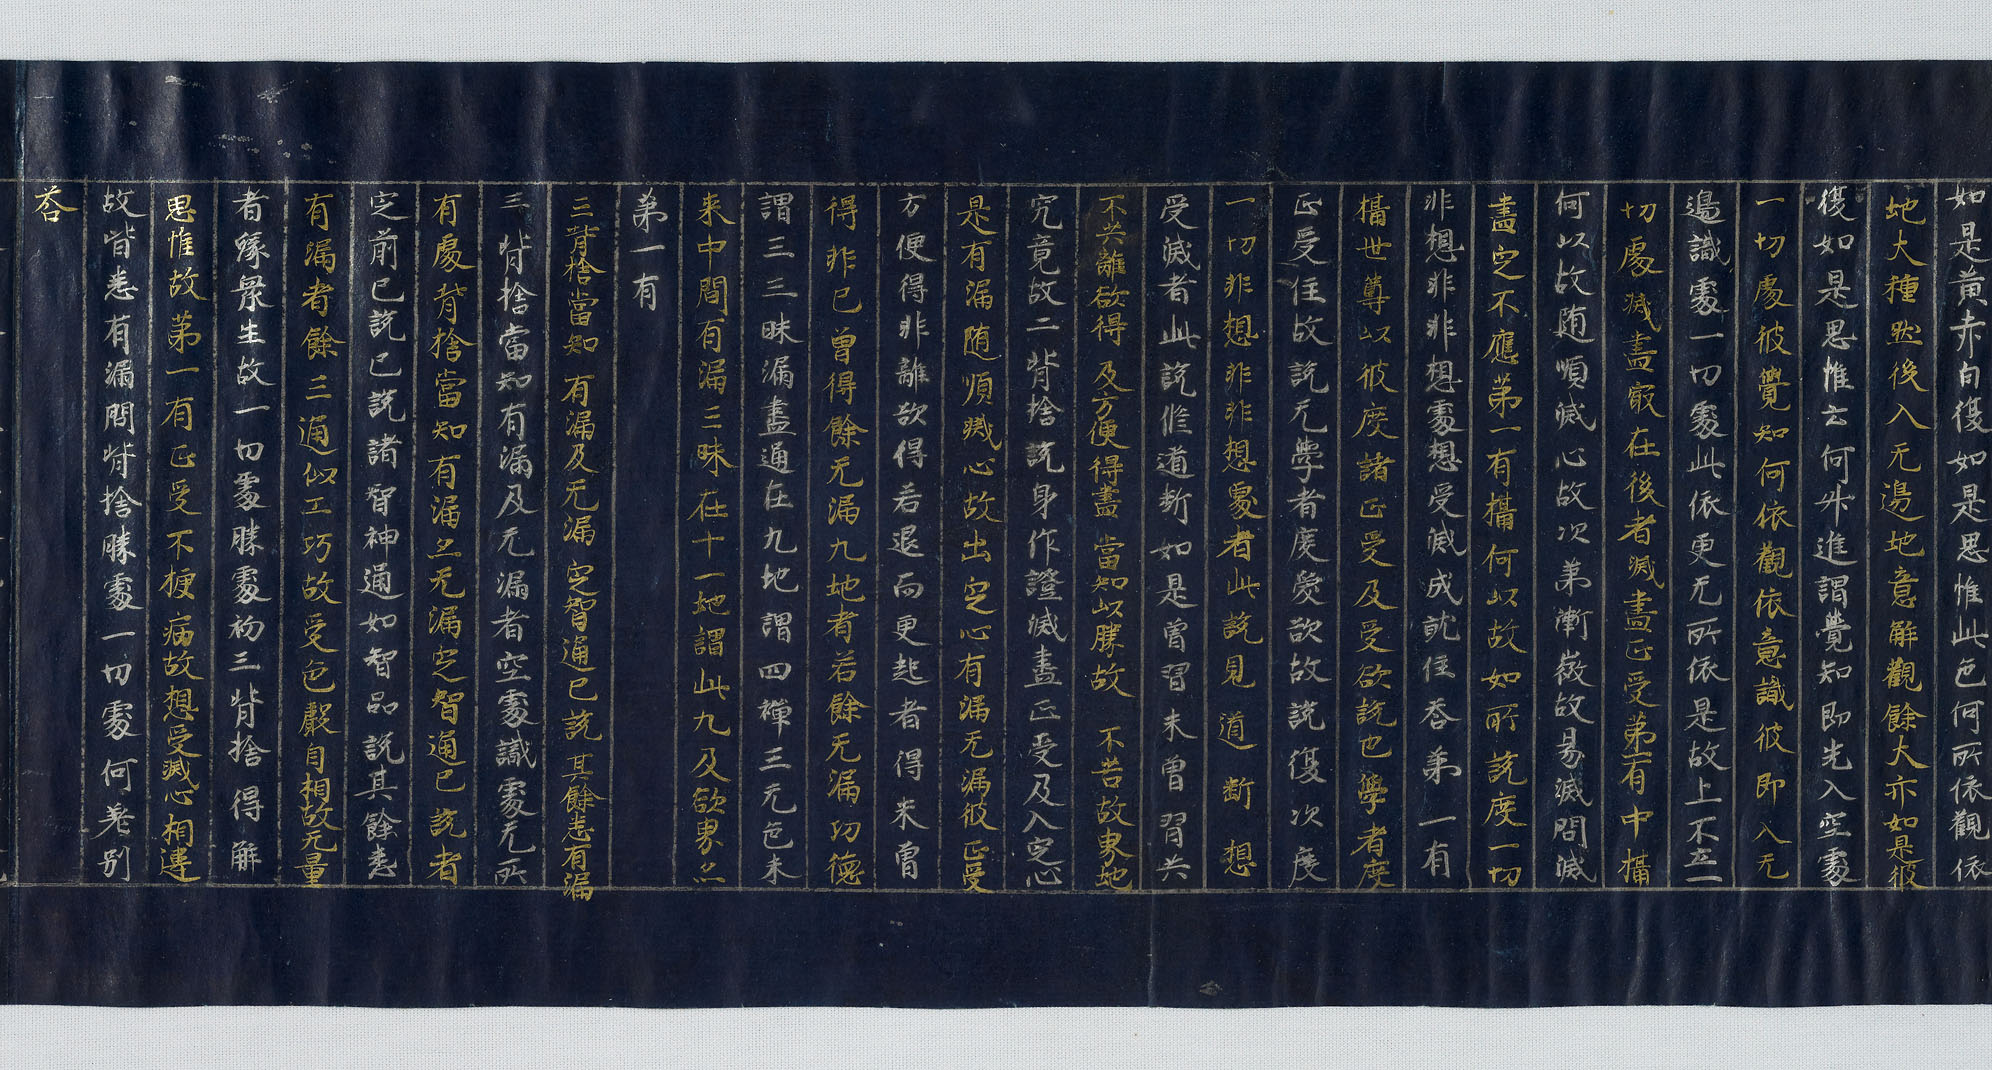 如是黄赤白復如是思惟此色何所依觀依
地大種然後入无邊地意解觀餘大亦如是彼
復如是思惟云何昇進謂覺知即先入空處
一切處彼覺知何依觀依意識彼即入无
邊識處一切處此依更无所依是故上不立一
切處滅盡㝡在後者滅盡正受第一有中攝
何以故随順滅心故次第漸微故易滅問滅
盡定不應第一有攝何以故如所說度一切
非想非非想處想受滅成就住荅第一有
攝世尊以彼度諸正受及受欲說也學者度
正受住故說无學者度愛欲故說復次度
一切非想非非想處者此說見道断想
受滅者此說修道断如是曾習未曾習共
不共離欲得及方便得盡當知以勝故不苦故東地
究竟故二背捨說身作證滅盡正受及入定心
是有漏随順滅心故出定心有漏无漏彼正受
方便得非離欲得若退而更起者得未曾
得非已曾得餘无漏九地者若餘无漏功德
謂三三昧漏盡通在九地謂四禪三无色未
来中間有漏三昧在十一地謂此九及欲界亦
第一有
三背捨當知有漏及无漏定智通已說其餘悉有漏
三背捨當知有漏及无漏者空處識處无所
有處背捨當知有漏亦无漏定智通已說者
定前已說已說諸智神通如智品說其餘悉
有漏者餘三通似工巧故受色聲自相故无量
者緣衆生故一切處勝處初三背捨得解
思惟故第一有正受不捷疾故想受滅心相違
故皆悉有漏問背捨勝處一切處何差别
荅